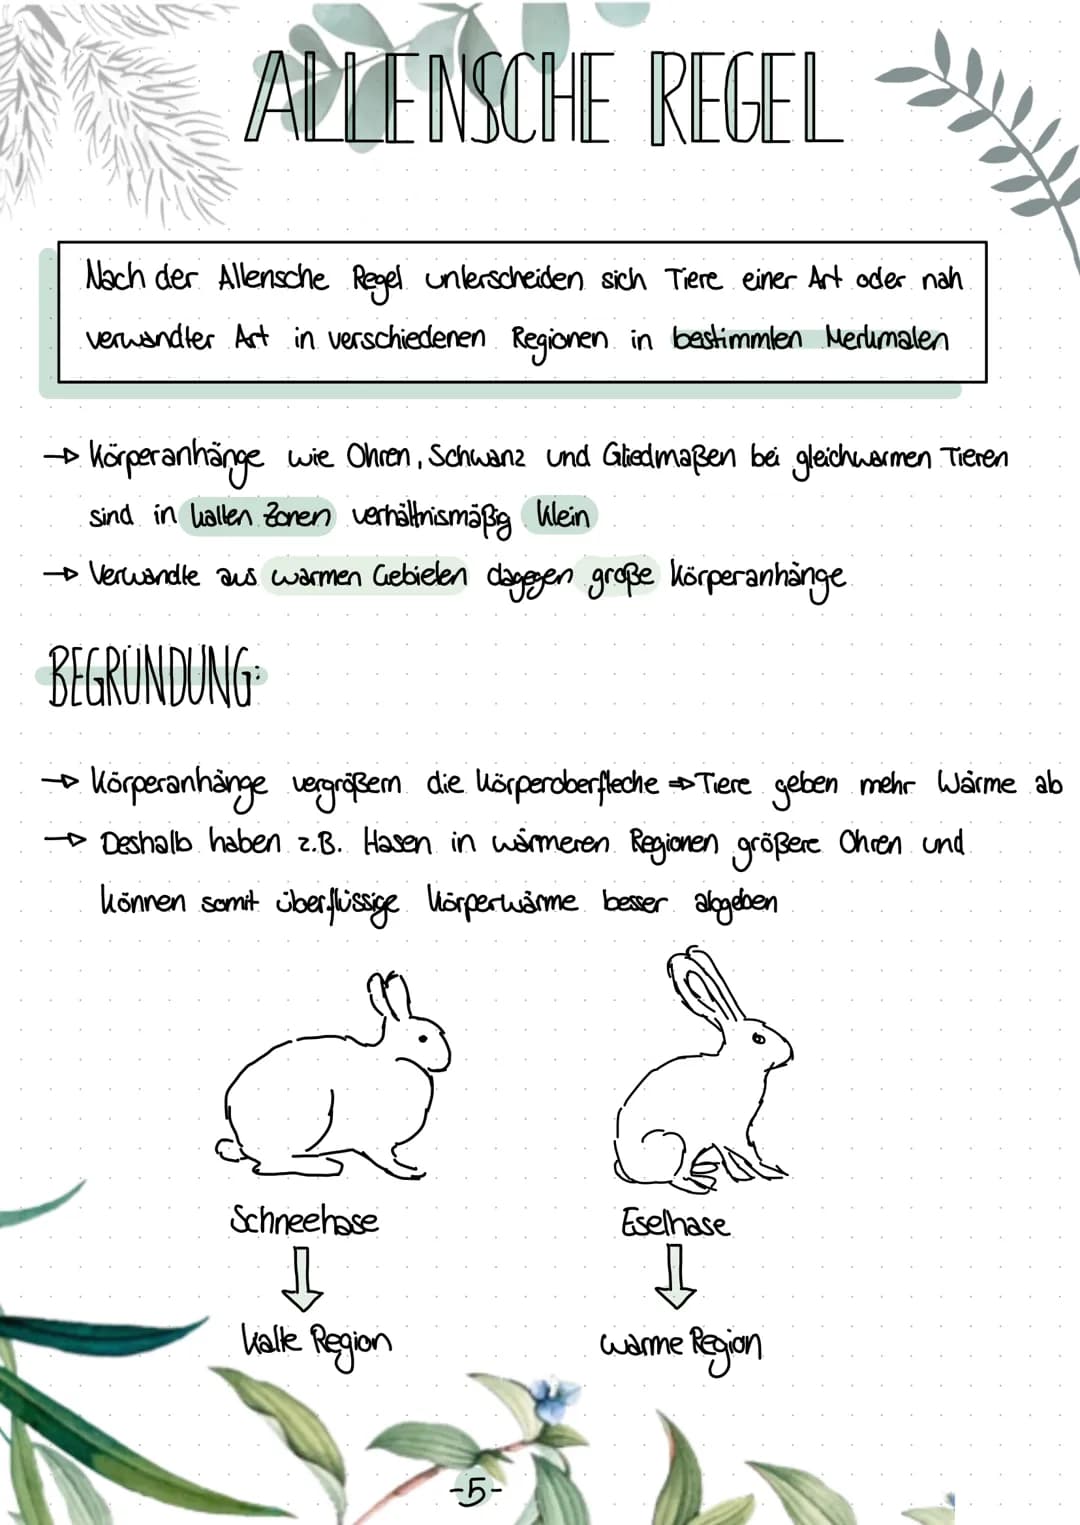 ALLENSCHE REGEL
Nach der Allensche Regel unterscheiden sich Tiere einer Art oder nah
verwandter Art in verschiedenen Regionen in bestimmten Merkmalen
→ Körperanhänge wie Ohren, Schwanz und Gliedmaßen bei gleichwarmen Tieren
sind in kalten Zonen verhältnismäßig klein
→ Verwandte aus warmen Gebieten dagegen große Körperanhänge
BEGRÜNDUNG:
→ Körperanhänge vergrößern die Körperoberfleche ⇒ Tiere geben mehr Wärme ab
→ Deshalb haben z.B. Hasen in wärmeren Regionen größere Ohren und
können somit überflüssige Körperwärme besser abgeben
Schneehase Eselhase
kalte Region warme Region
-5-